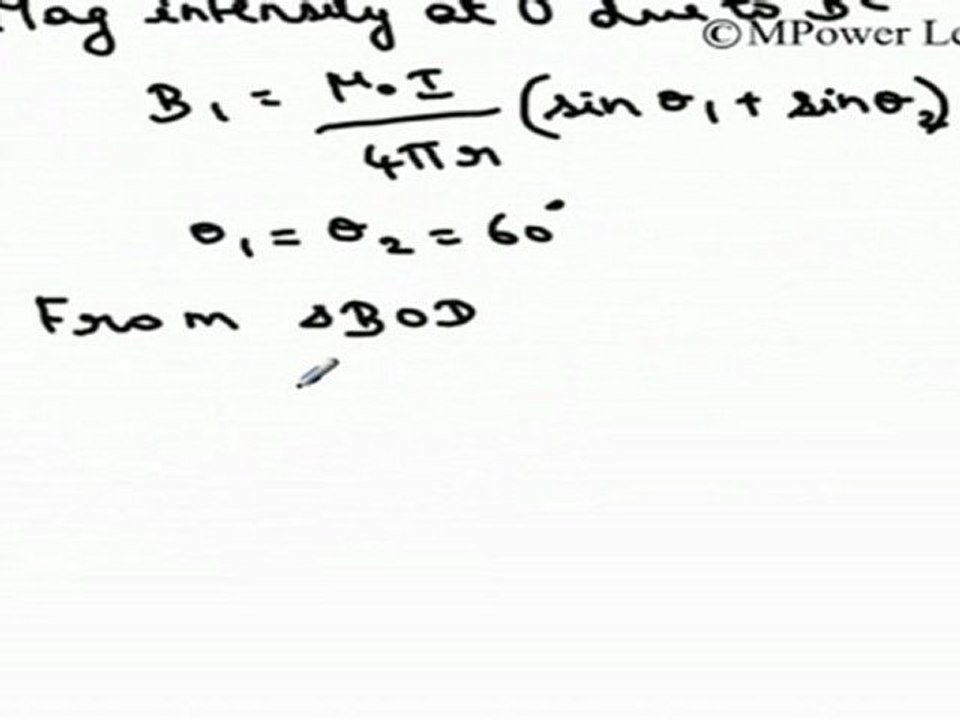 Mag intensity at O due to BC
©MPower Le
B₁ = μ₀I / 4πr (sin θ₁ + sin θ₂)
θ₁ = θ₂ = 60°
From ΔBOD